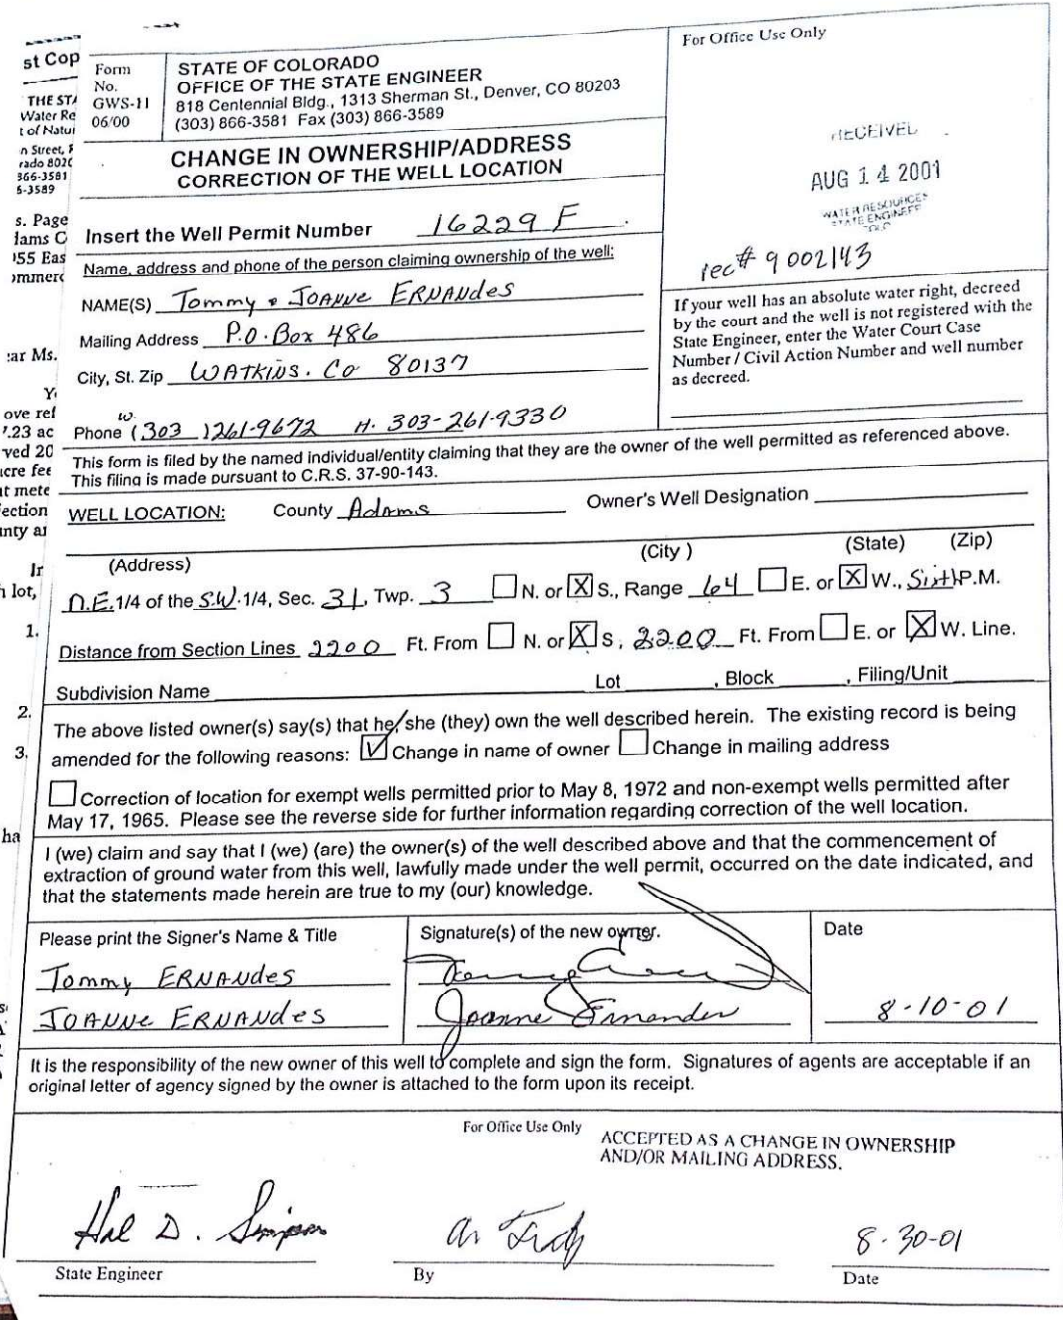 st Cop
THE STA
Water Re
t of Natur
n Street, F
rado 8020
366-3581
6-3589
s. Page
lams C
)55 Eas
ommerc
:ar Ms.
Y
ove ref
7.23 ac
ved 20
icre fee
it mete
ection
inty ar
Ir
lot,
1.
2.
3.
ha
Form
No.
GWS-11
06/00
STATE OF COLORADO
OFFICE OF THE STATE ENGINEER
818 Centennial Bldg., 1313 Sherman St., Denver, CO 80203
(303) 866-3581 Fax (303) 866-3589
For Office Use Only
CHANGE IN OWNERSHIP/ADDRESS
CORRECTION OF THE WELL LOCATION
RECEIVED
AUG 14 2001
WATER RESOURCES
STATE ENGINEER
COLO
rec# 9002143
Insert the Well Permit Number 16229 F
Name, address and phone of the person claiming ownership of the well:
NAME(S) Tommy & JOANNe ERNANdes
Mailing Address P.O. Box 486
City, St. Zip WATKINS. Co 80137
Phone w. (303) 261-9672 H. 303-261-9330
If your well has an absolute water right, decreed
by the court and the well is not registered with the
State Engineer, enter the Water Court Case
Number / Civil Action Number and well number
as decreed.
This form is filed by the named individual/entity claiming that they are the owner of the well permitted as referenced above.
This filing is made pursuant to C.R.S. 37-90-143.
WELL LOCATION: County Adams Owner's Well Designation
(Address) (City ) (State) (Zip)
N.E. 1/4 of the S.W. 1/4, Sec. 31, Twp. 3 N. or X S., Range 64 E. or X W., Sixth P.M.
Distance from Section Lines 2200 Ft. From N. or X S, 2200 Ft. From E. or X W. Line.
Subdivision Name Lot , Block , Filing/Unit
The above listed owner(s) say(s) that he/she (they) own the well described herein. The existing record is being
amended for the following reasons: ✓ Change in name of owner Change in mailing address
Correction of location for exempt wells permitted prior to May 8, 1972 and non-exempt wells permitted after
May 17, 1965. Please see the reverse side for further information regarding correction of the well location.
I (we) claim and say that I (we) (are) the owner(s) of the well described above and that the commencement of
extraction of ground water from this well, lawfully made under the well permit, occurred on the date indicated, and
that the statements made herein are true to my (our) knowledge.
Please print the Signer's Name & Title
Tommy ERNANdes
JOANNe ERNANdes
Signature(s) of the new owner.
Joanne Ernandes
Date
8-10-01
It is the responsibility of the new owner of this well to complete and sign the form. Signatures of agents are acceptable if an
original letter of agency signed by the owner is attached to the form upon its receipt.
For Office Use Only
ACCEPTED AS A CHANGE IN OWNERSHIP
AND/OR MAILING ADDRESS.
Hal D. Simpson
State Engineer
By
8-30-01
Date